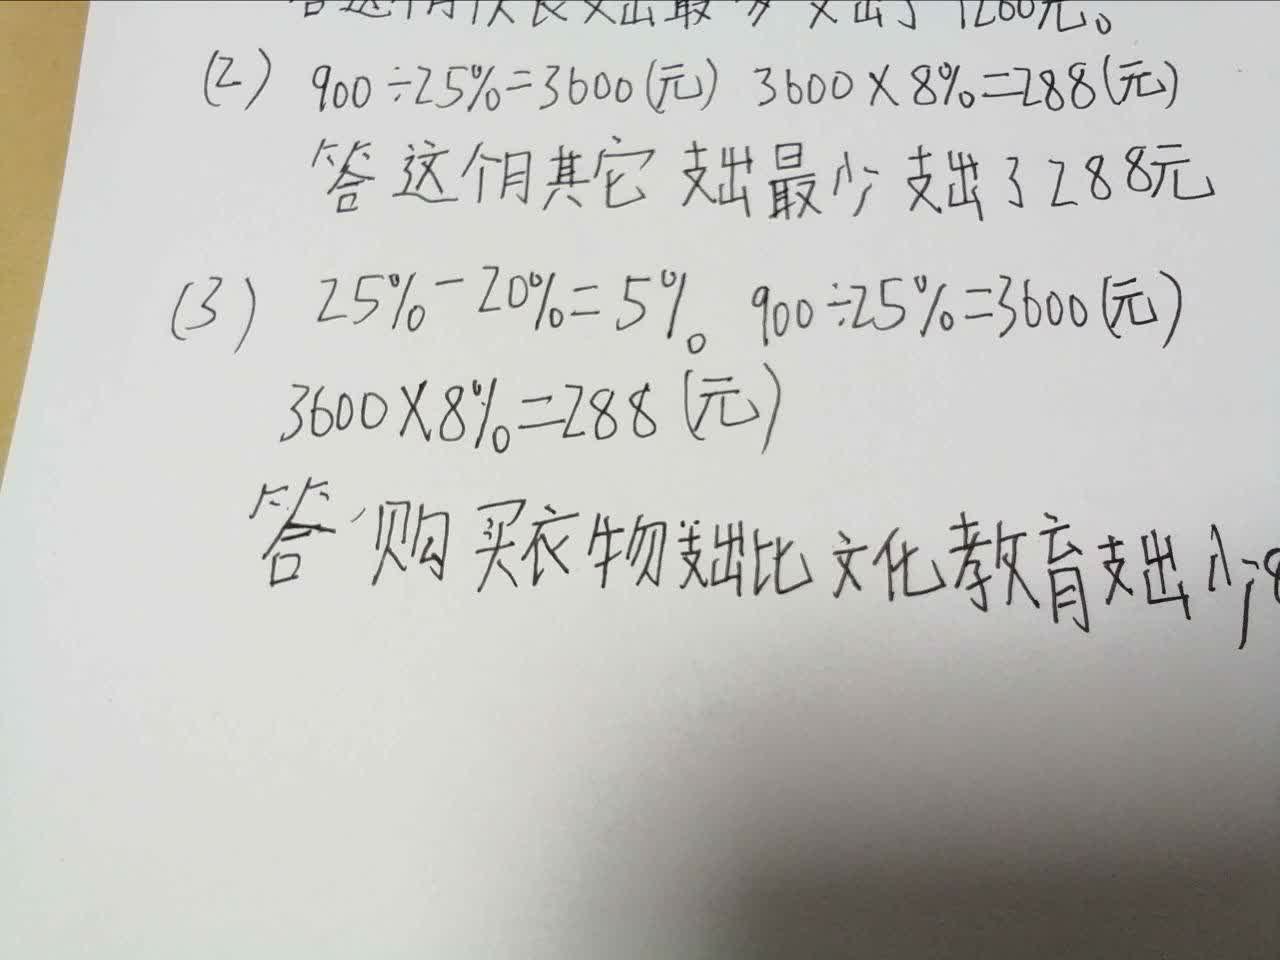 答这个月伙食支出最多支出了1200元。
(2) 900÷25%=3600(元) 3600×8%=288(元)
答这个月其它支出最少支出了288元
(3) 25%-20%=5% 900÷25%=3600(元)
3600×8%=288(元)
答购买衣物支出比文化教育支出少